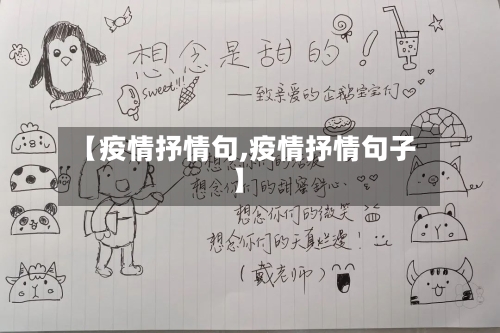 想念是甜的！
sweet!!!
——致亲爱的企鹅宝宝们
【疫情抒情句,疫情抒情句子
】
想念你们的甜蜜舒心
想念你们的微笑
想念你们的天真烂漫！
（戴老师）